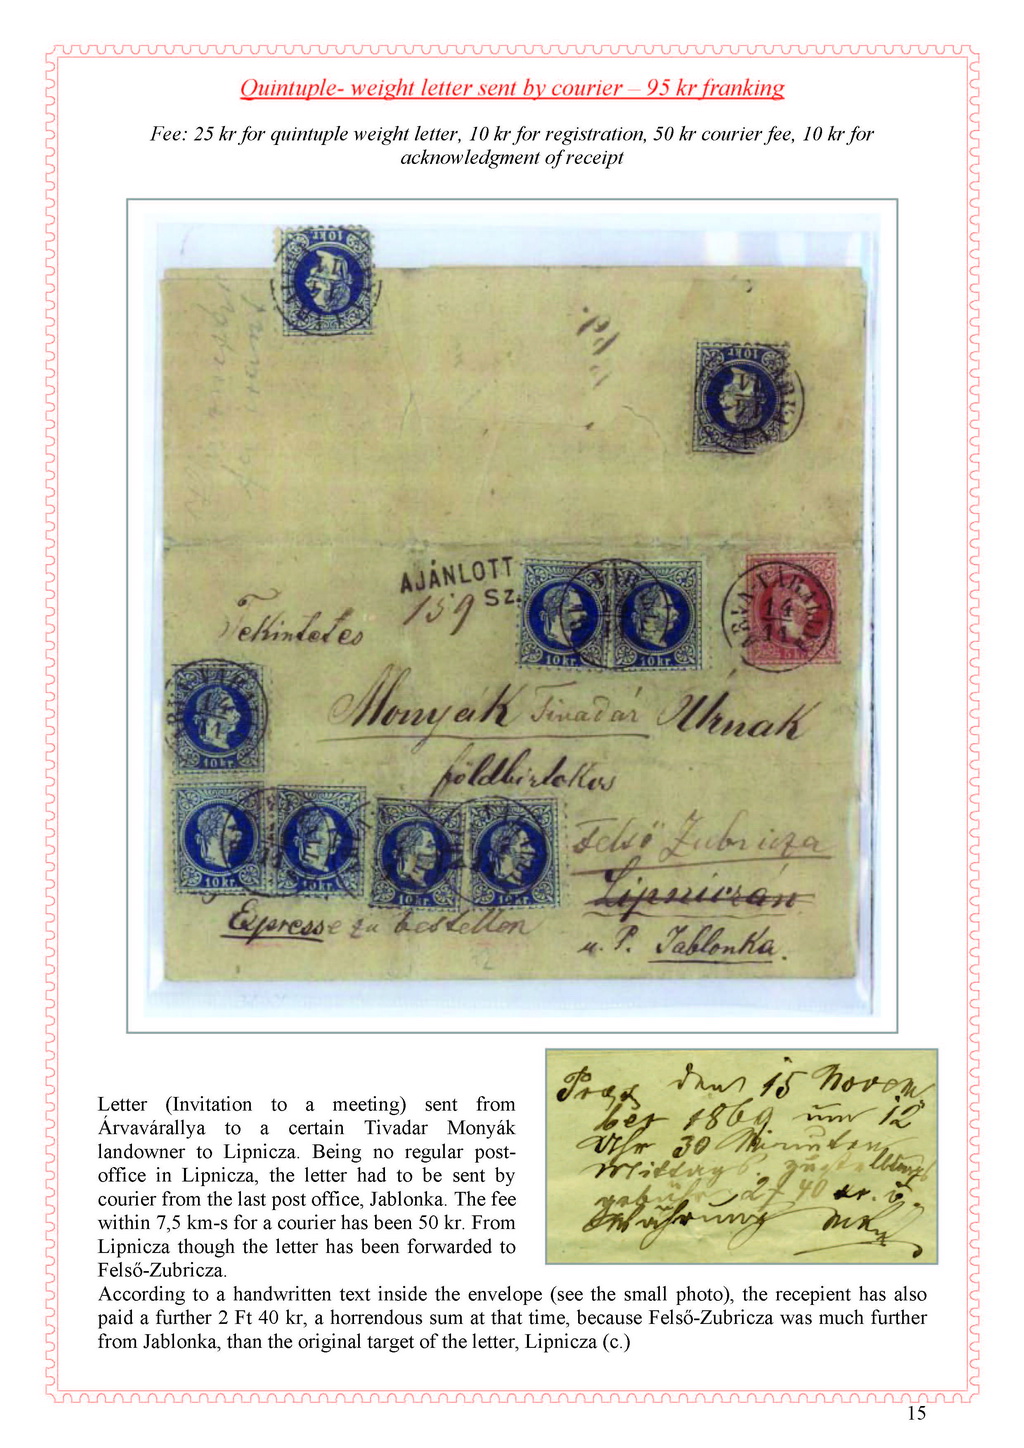 Quintuple- weight letter sent by courier – 95 kr franking
Fee: 25 kr for quintuple weight letter, 10 kr for registration, 50 kr courier fee, 10 kr for
acknowledgment of receipt
10kr
10kr
AJÁNLOTT
159 SZ.
Tekintetes
10kr. 10kr.
ÁRVA VÁRALJA
14
11
Monyák Tivadar Úrnak
10kr.
földbirtokos
Felső Zubricza
Lipniczán
10kr. 10kr. 10kr. 10kr.
Expresse zu bestellen
u. P. Jablonka.
Letter (Invitation to a meeting) sent from
Árvavárallya to a certain Tivadar Monyák
landowner to Lipnicza. Being no regular post-
office in Lipnicza, the letter had to be sent by
courier from the last post office, Jablonka. The fee
within 7,5 km-s for a courier has been 50 kr. From
Lipnicza though the letter has been forwarded to
Felső-Zubricza.
den 15 Novem
ber 1869 um 12
Uhr 30 Minuten
Mittags.
gebühr 2 f 40 kr. ö
Währung
According to a handwritten text inside the envelope (see the small photo), the recepient has also
paid a further 2 Ft 40 kr, a horrendous sum at that time, because Felső-Zubricza was much further
from Jablonka, than the original target of the letter, Lipnicza (c.)
15